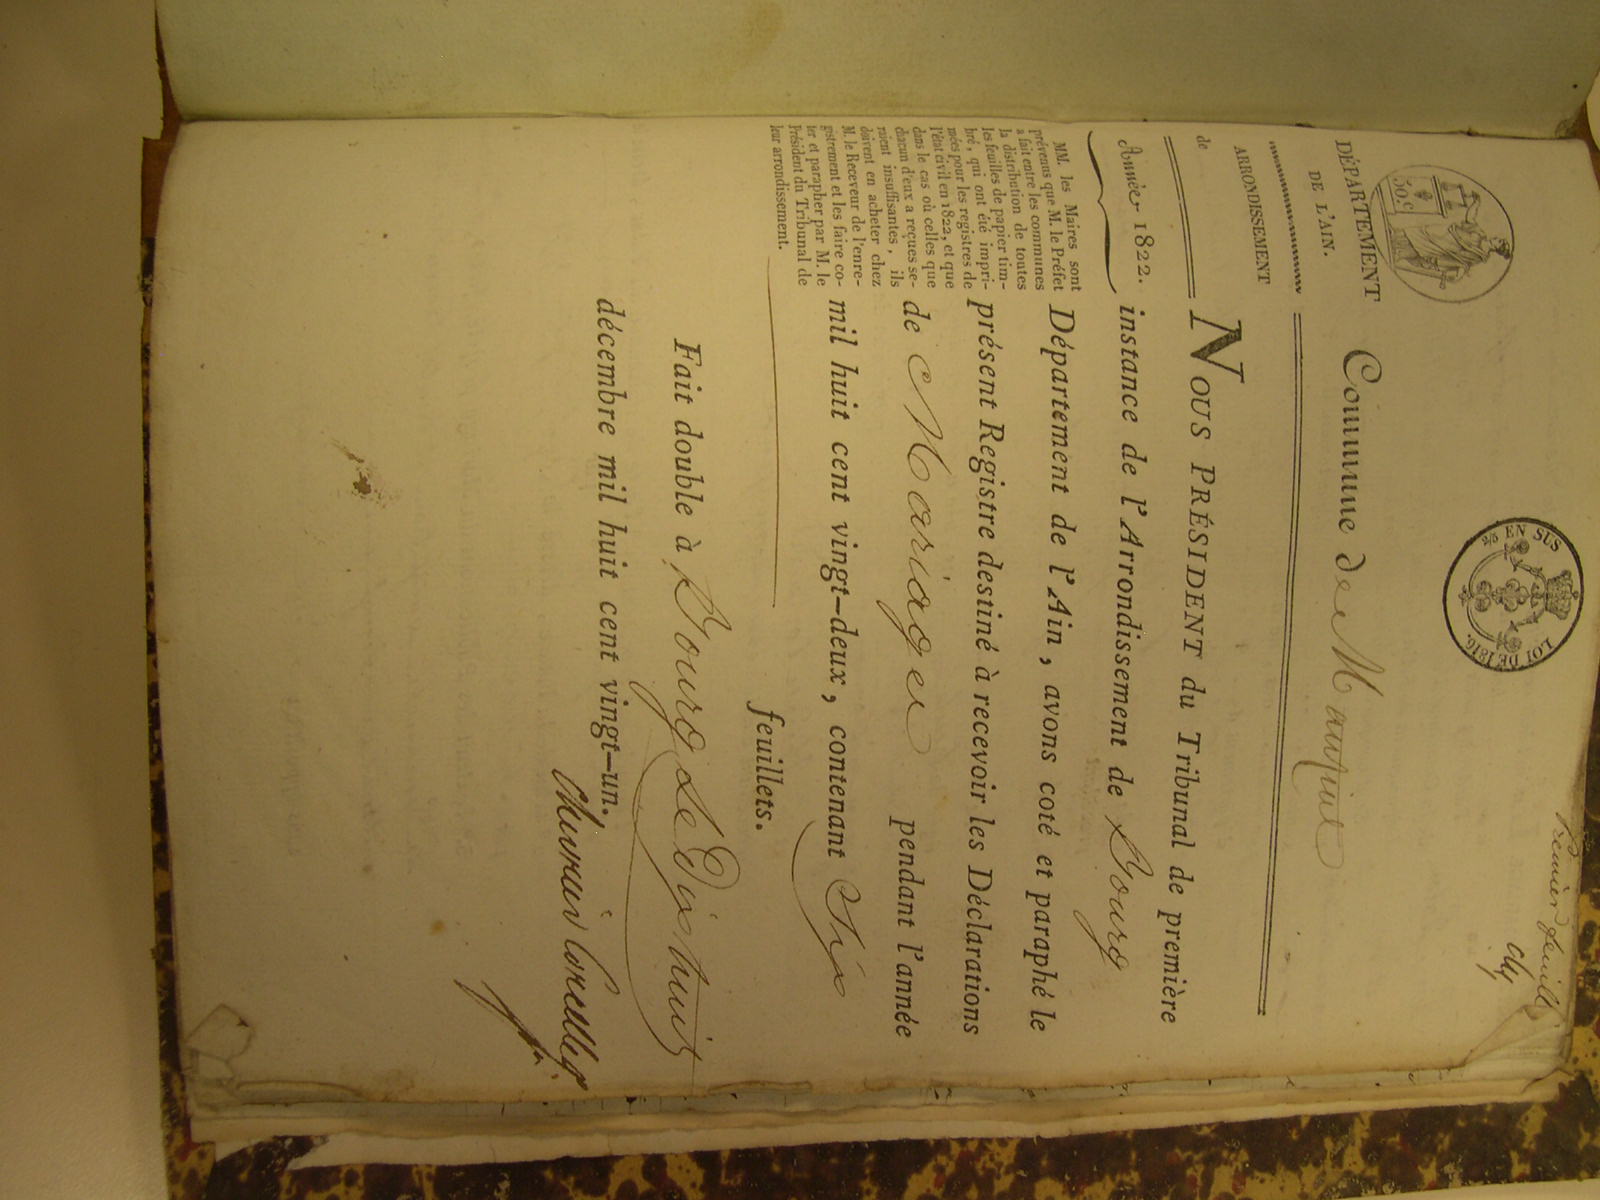 Premier feuillet
50.c
2/5 EN SUS
LOI DE 1816.
DÉPARTEMENT
DE L'AIN.
ARRONDISSEMENT
de
Année 1822.
MM. les Maires sont
prévenus que M. le Préfet
a fait entre les communes
la distribution de toutes
les feuilles de papier tim-
bré, qui ont été impri-
mées pour les registres de
l'état civil en 1822, et que
dans le cas où celles que
chacun d'eux a reçues se-
raient insuffisantes, ils
doivent en acheter chez
M. le Receveur de l'enre-
gistrement et les faire co-
ter et parapher par M. le
Président du Tribunal de
leur arrondissement.
Commune de
NOUS PRÉSIDENT du Tribunal de première
instance de l'Arrondissement de Bourg
Département de l'Ain, avons coté et paraphé le
présent Registre destiné à recevoir les Déclarations
de Mariages pendant l'année
mil huit cent vingt-deux, contenant Six
feuillets.
Fait double à Bourg le Dix huit
décembre mil huit cent vingt-un.